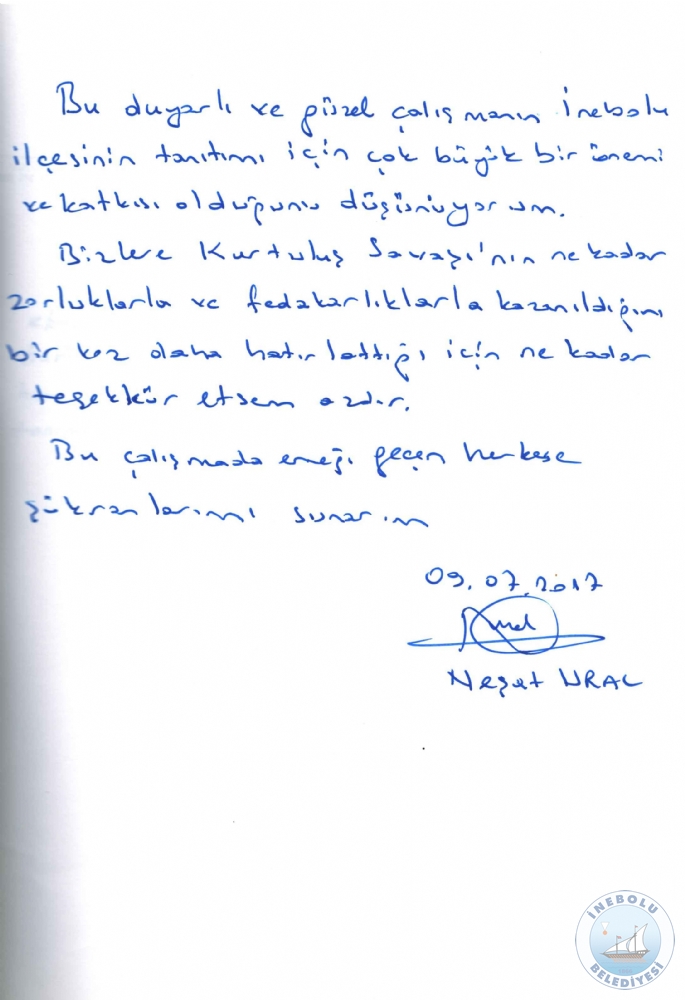 Bu duyarlı ve güzel çalışmanın İnebolu
ilçesinin tanıtımı için çok büyük bir önemi
ve katkısı olduğunu düşünüyorum.
Bizlere Kurtuluş Savaşı'nın ne kadar
zorluklarla ve fedakarlıklarla kazanıldığını
bir kez daha hatırlattığı için ne kadar
teşekkür etsem azdır.
Bu çalışmada emeği geçen herkese
şükranlarımı sunarım
09.07.2017
Neşet URAL
İNEBOLU
BELEDİYESİ